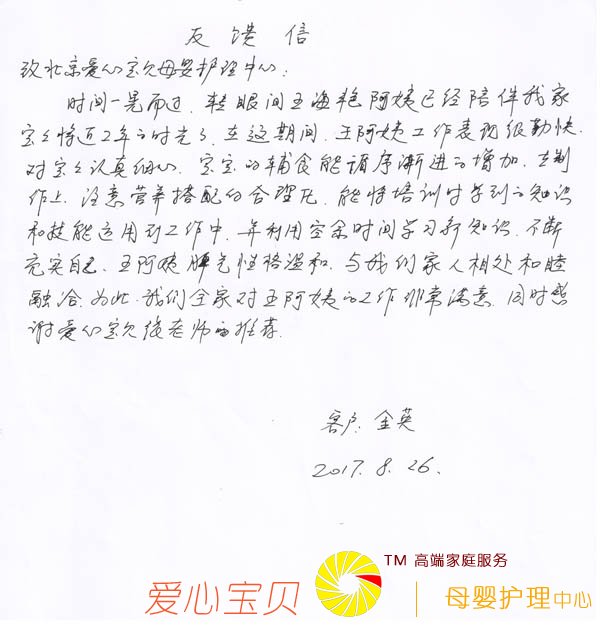 反馈信
致北京爱心宝贝母婴护理中心：
时间一晃而过，转眼间王海艳阿姨已经陪伴我家
宝宝将近2年的时光了，在这期间，王阿姨工作表现很勤快，
对宝宝认真细心，宝宝的辅食能循序渐进的增加，在制
作上，注意营养搭配的合理化，能将培训时学到的知识
和技能运用到工作中，并利用空余时间学习新知识，不断
充实自己，王阿姨 性格温和，与我们家人相处和睦
融洽，为此，我们全家对王阿姨的工作非常满意，同时感
谢爱心宝贝 老师的推荐．
客户：金英
2017.8.26.
TM 高端家庭服务
爱心宝贝 母婴护理中心